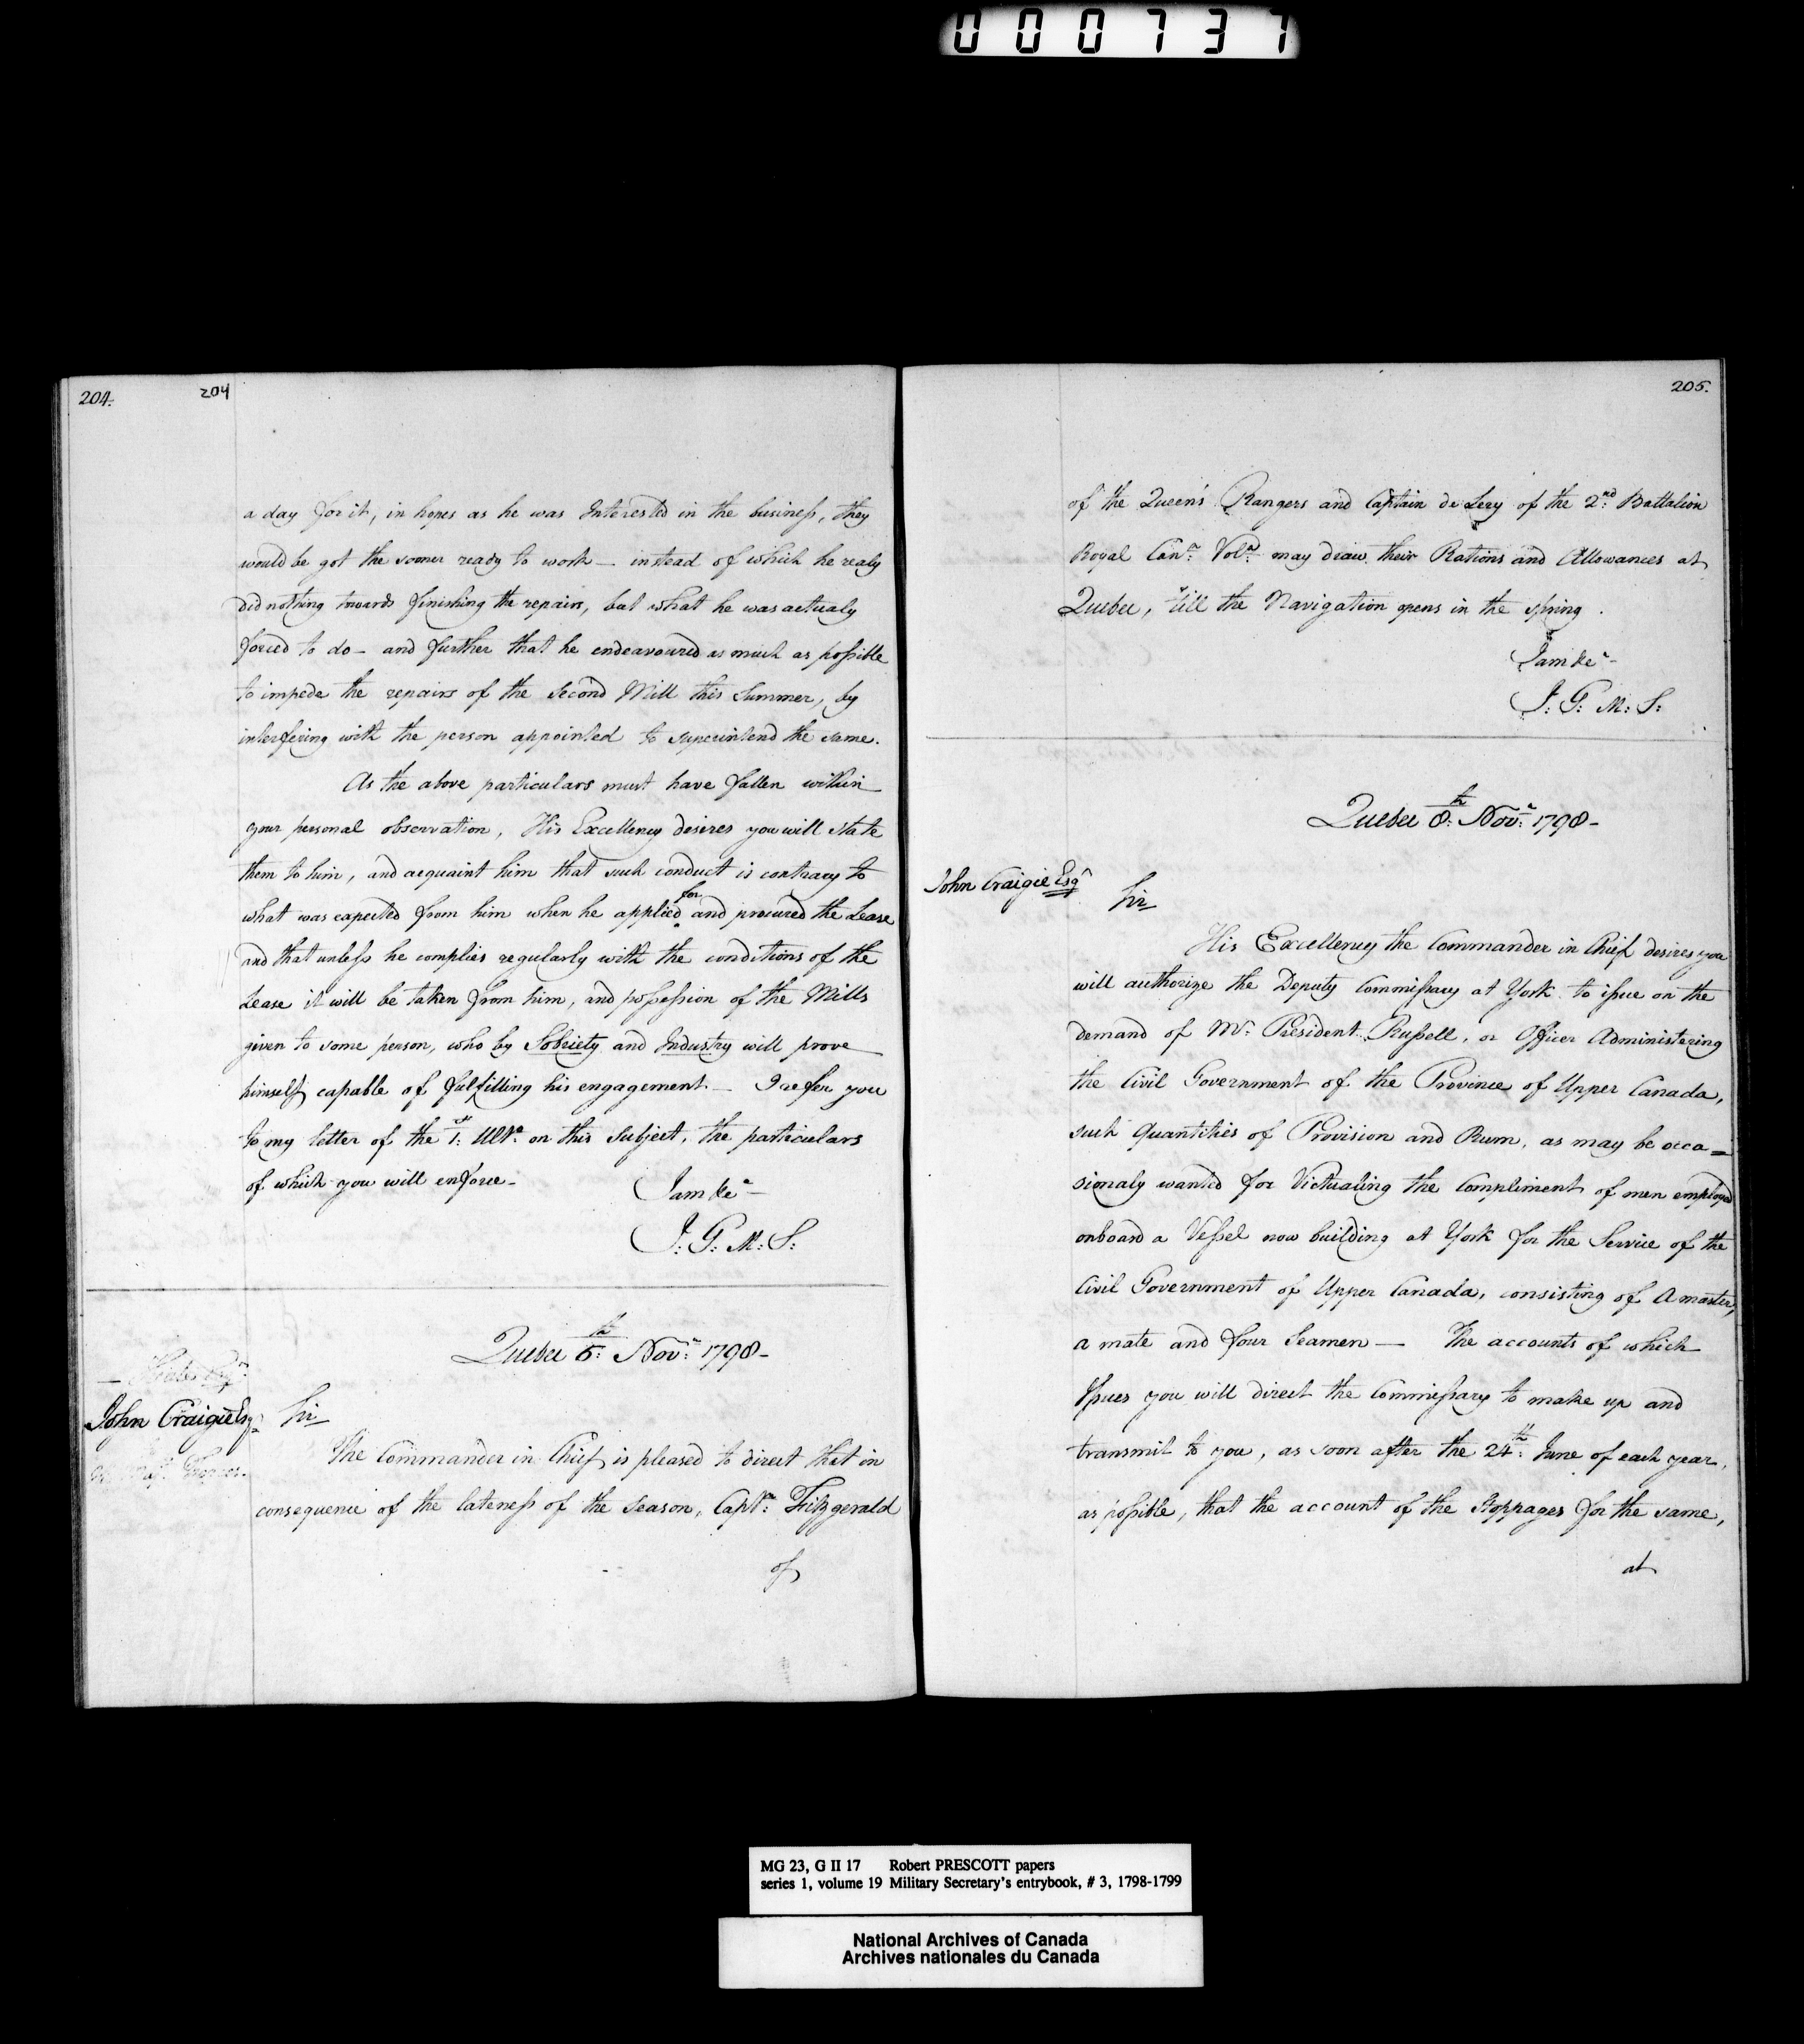 000737
204. 204
a day for it, in hopes as he was Interested in the business, they
would be got the sooner ready to work — instead of which he realy
did nothing towards finishing the repairs, but what he was actualy
forced to do — and further that he endeavoured as much as possible
to impede the repairs of the Second Mill this Summer, by
interfering with the person appointed to superintend the same.
As the above particulars must have fallen within
your personal observation, His Excellency desires you will state
them to him, and acquaint him that such conduct is contrary to
what was expected from him when he applied for and procured the Lease
and that unless he complies regularly with the conditions of the
Lease it will be taken from him, and possession of the Mills
given to some person, who by Sobriety and Industry will prove
himself capable of fulfilling his engagement. — I refer you
to my letter of the 1st Ulto on this Subject, the particulars
of which you will enforce —
I am &ca —
J: G: M: S:
Quebec 5th Novr 1798 —
John Craigie Esqr
Sir
The Commander in Chief is pleased to direct that in
consequence of the lateness of the Season, Captn Fitzgerald
of
205.
of the Queen's Rangers and Captain de Lery of the 2nd Battalion
Royal Cann Volrs may draw their Rations and Allowances at
Quebec, till the Navigation opens in the spring.
I am &ca —
J: G: M: S:
Quebec 8th Novr 1798 —
John Craigie Esqr
Sir
His Excellency the Commander in Chief desires you
will authorize the Deputy Commissary at York to issue on the
demand of Mr. President Russell, or Officer Administering
the Civil Government of the Province of Upper Canada,
such Quantities of Provision and Rum, as may be occa=
sionaly wanted for Victualing the Compliment of men employed
onboard a Vessel now building at York for the Service of the
Civil Government of Upper Canada, consisting of A master,
a mate and four Seamen — The accounts of which
Issues you will direct the Commissary to make up and
transmit to you, as soon after the 24th June of each year,
as possible, that the account of the Stoppages for the same,
at
MG 23, G II 17 Robert PRESCOTT papers
series 1, volume 19 Military Secretary's entrybook, # 3, 1798-1799
National Archives of Canada
Archives nationales du Canada